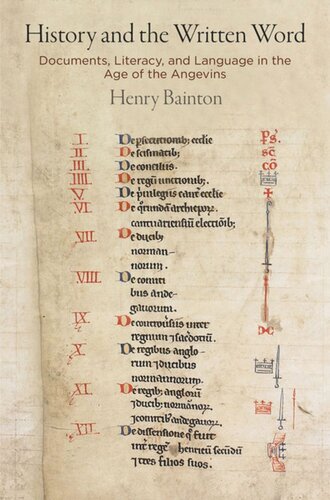 History and the Written Word
Documents, Literacy, and Language in the
Age of the Angevins
Henry Bainton
I. De persecutionib; ecclie
II. De scismatib;
III. De conciliis.
IIII. De regū unctionib;.
V. De p'uilegiis cant' ecclie
VI. De archiepoꝝ.
cantuariensiū electiōib;
VII. De ducib;
norman-
norum.
VIII. De comiti
bus ande-
gauorum.
IX. De controuersiis inter
regnum ⁊ sac'dotiū.
X. De regibus anglo-
rum ⁊ ducibus
normannorum.
XI. De regib; angloꝝ
⁊ ducib; normānoꝝ.
⁊ comitib; andegauoꝝ.
XII. De dissensione q̄ fuit
int' regē henricū secundū
⁊ tres filios suos.